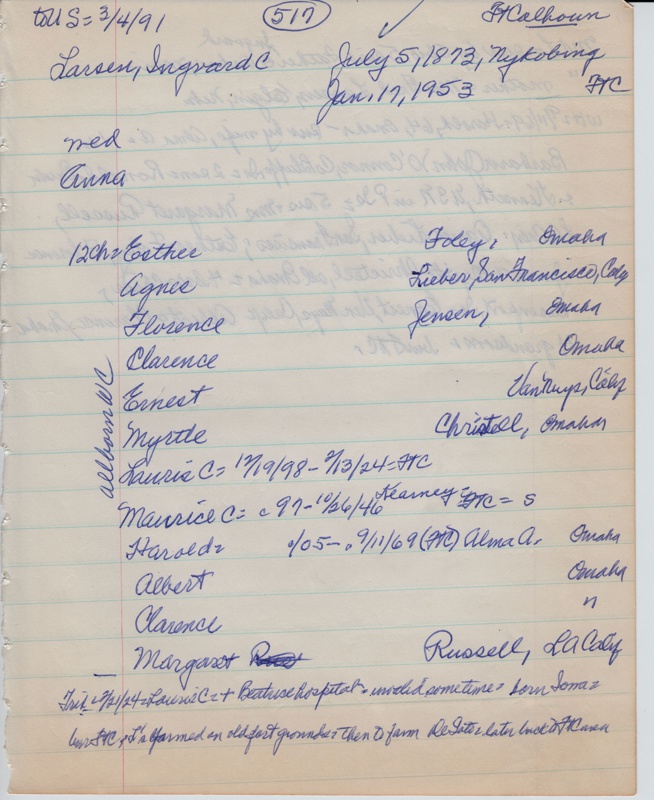 to US = 3/4/91 517 Ft Calhoun
Larsen, Ingvard C July 5, 1873, Nykobing
Jan. 17, 1953 FtC
med
Anna
12 Ch = Esther Foley, Omaha
Agnes Lieber, San Francisco, Calif
Florence Jensen, Omaha
Clarence Omaha
all born WC
Ernest Van Nuys, Calif
Myrtle Christell, Omaha
Lauris C = 12/19/98 - 2/13/24 = FtC
Maurice C = c 97 - 10/26/46 Kearney = FtC = S
Harold = /05 - 9/11/69 (FtC) Alma A. Omaha
Albert Omaha
Clarence "
Margaret Russell, LA Calif
Trib 2/21/24 = Lauris C = + Beatrice hospital = invalid sometime = born Ioma =
bur FtC, L's farmed on old fort grounds = then to farm DeSoto = later back to FtC area